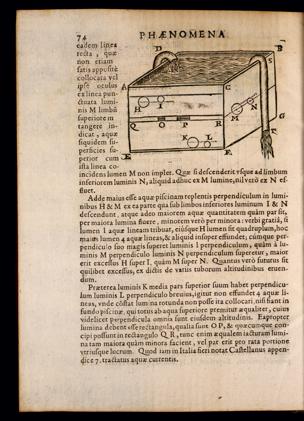 74 PHÆNOMENA
eadem linea
recta, quæ
non etiam
satis appositè
collocata vel
ipse oculus
ex linea pun-
ctuata lumi-
nis M limbũ
superiorem
tangere in-
dicat, aquæ
siquidem su-
perficies su-
perior cum
ista linea co-
D B S A C H I M N Q O P R K L E F G
incidens lumen M non implet. Quæ si descenderit vsque ad limbum
inferiorem luminis N, aliquid adhuc ex M lumine, nil verò ex N ef-
fluet.
Adde maius esse aquæ piscinam replentis perpendiculum in lumi-
nibus H & M ex ea parte qua sub limbos inferiores luminum I & N
descendunt, atque adeo maiorem aquæ quantitatem quàm par sit,
per maiora lumina fluere, minorem verò per minora: verbi gratiâ, si
lumen I aquæ lineam tribuat, eiúsque H lumen sit quadruplum, hoc
maius lumen 4 aquæ lineas, & aliquid insuper effundet, cùmque per-
pendiculo suo magis superet luminis I perpendiculum, quàm à lu-
minis M perpendiculo luminis N perpendiculum superetur, maior
erit excessus H super I, quàm M super N. Quantus verò futurus sit
quilibet excessus, ex dictis de variis tuborum altitudinibus eruen-
dum.
Præterea luminis K media pars superior suum habet perpendicu-
lum luminis L perpendiculo breuius, igitur non effundet 4 aquæ li-
neas, vnde cõstat lumina rotunda non posse ita collocari, nisi fiant in
fundo piscinæ, qui totus ab aqua superiore premitur æqualiter, cuius
videlicet perpendicula omnia sunt eiusdem altitudinis. Eapropter
lumina debent esse rectangula, qualia sunt O P, & quæcumque con-
cipi possunt in rectangulo Q R, tunc enim æqualem iacturam lumi-
na tam maiora quàm minora facient, vel par erit pro rata portione
vtriusque lucrum. Quod iam in Italia fieri notat Castellanus appen-
dice 7. tractatus aquæ currentis.